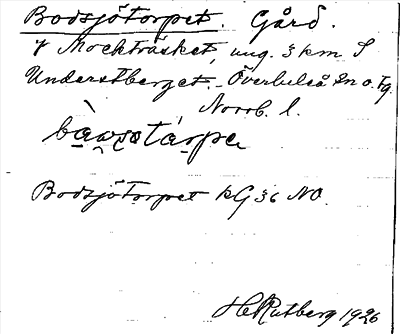 Bodsjötorpet. Gård.
V Mockträsket, ung. 3 km S
Understberget. Överluleå sn o. tg.
Norrb. l.
Bodsjötorpet kG 36 NO.
H Rutberg 1926